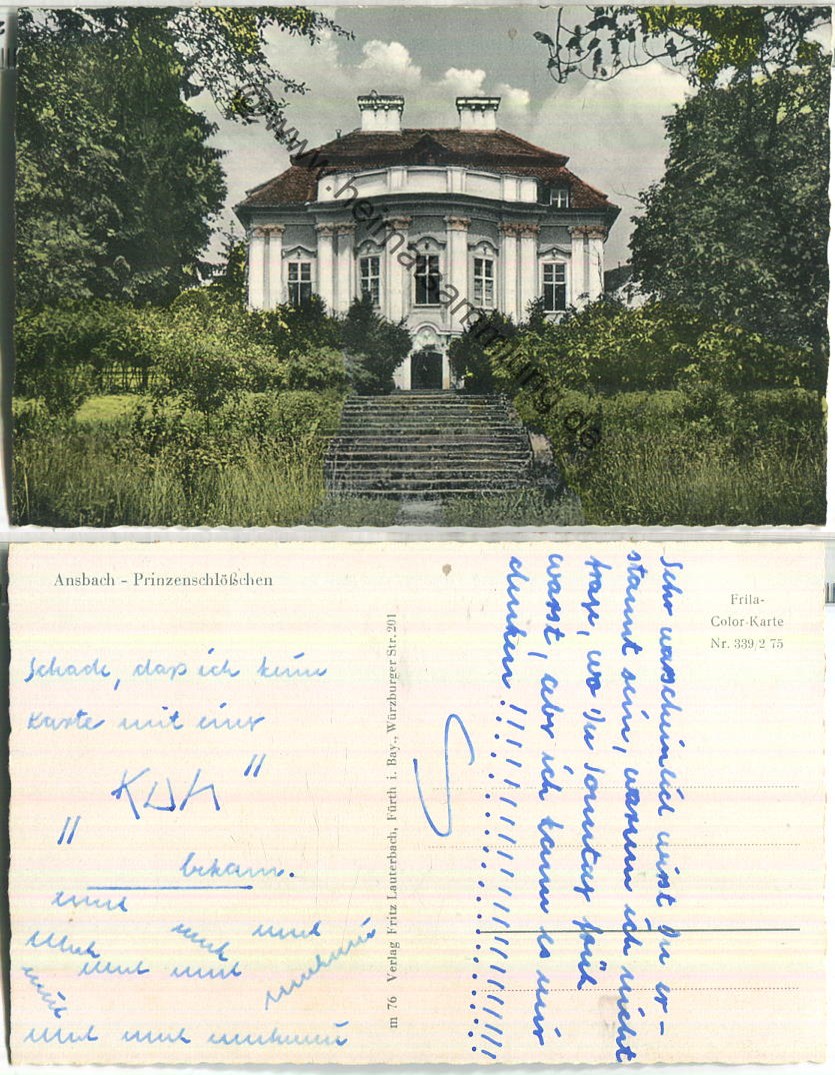 © www.heimatsammlung.de
Ansbach - Prinzenschlößchen
Schade, daß ich keine
Karte mit einer
"KUH"
bekam.
muh
muh muh
muh muh muh
muh muhmuh
muh muh muhmuh
m 76 Verlag Fritz Lauterbach, Fürth i. Bay., Würzburger Str. 201
Frila-
Color-Karte
Nr. 339/2 75
Sehr warscheinlich wirst Du er-
staunt sein, warum ich nicht
frage, wo Du Sonntag früh
warst, aber ich kann es mir
denken!!!!!!!!!!!!!!!!!!!!
S